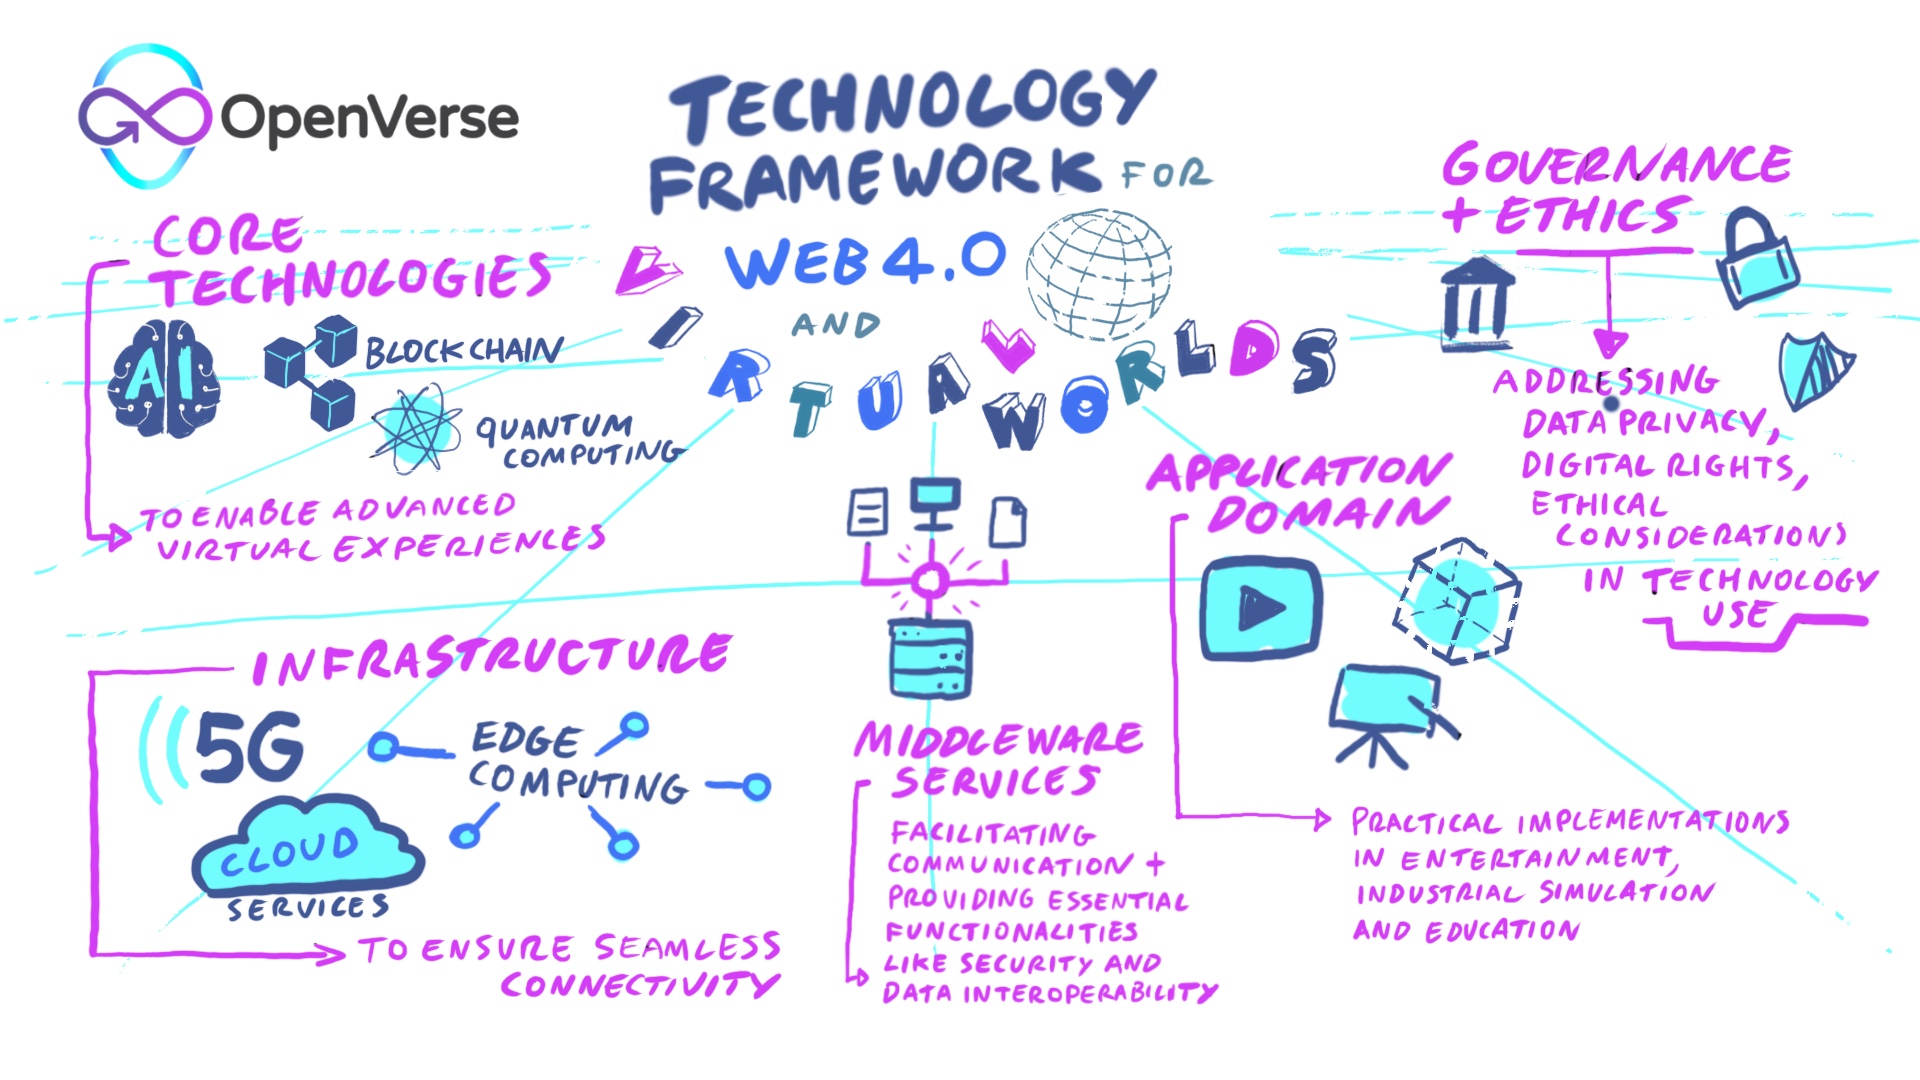 OpenVerse
TECHNOLOGY
FRAMEWORK FOR
WEB 4.0
AND
VIRTUAL WORLDS
CORE
TECHNOLOGIES
AI
BLOCKCHAIN
QUANTUM
COMPUTING
TO ENABLE ADVANCED
VIRTUAL EXPERIENCES
INFRASTRUCTURE
5G
EDGE
COMPUTING
CLOUD
SERVICES
TO ENSURE SEAMLESS
CONNECTIVITY
MIDDLEWARE
SERVICES
FACILITATING
COMMUNICATION +
PROVIDING ESSENTIAL
FUNCTIONALITIES
LIKE SECURITY AND
DATA INTEROPERABILITY
APPLICATION
DOMAIN
PRACTICAL IMPLEMENTATIONS
IN ENTERTAINMENT,
INDUSTRIAL SIMULATION
AND EDUCATION
GOVERNANCE
+ ETHICS
ADDRESSING
DATA PRIVACY,
DIGITAL RIGHTS,
ETHICAL
CONSIDERATIONS
IN TECHNOLOGY
USE